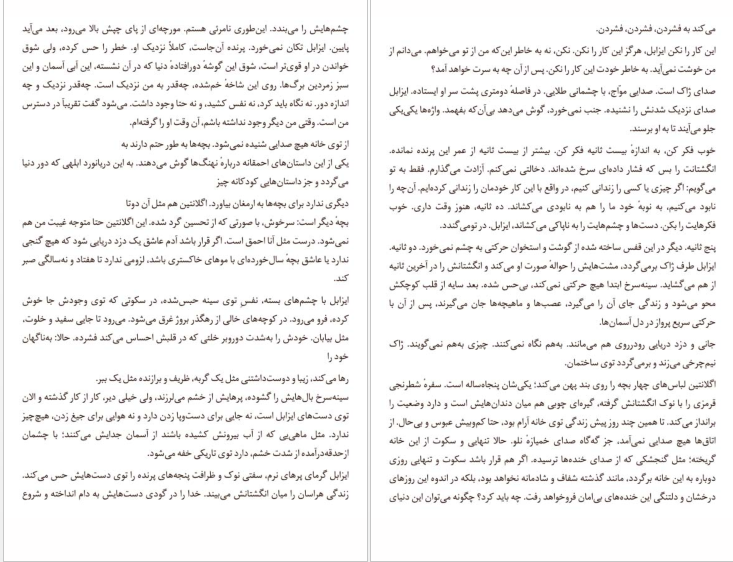 چشم‌هایش را می‌بندد. این‌طوری نامرئی هستم. مورچه‌ای از پای چپش بالا می‌رود، بعد می‌آید
پایین. ایزابل تکان نمی‌خورد. پرنده آن‌جاست، کاملاً نزدیک او. خطر را حس کرده، ولی شوق
خواندن در او قوی‌تر است، شوق این گوشهٔ دورافتادهٔ دنیا که در آن نشسته، این آبی آسمان و این
سبز زمردین برگ‌ها. روی این شاخهٔ خم‌شده، چه‌قدر به من نزدیک است. چه‌قدر نزدیک و چه
اندازه دور. نه نگاه باید کرد، نه نفس کشید، و نه حتا وجود داشت. می‌شود گفت تقریباً در دسترس
من است. وقتی من دیگر وجود نداشته باشم، آن وقت او را گرفته‌ام.
از توی خانه هیچ صدایی شنیده نمی‌شود. بچه‌ها به طور حتم دارند به
یکی از این داستان‌های احمقانه دربارهٔ نهنگ‌ها گوش می‌دهند. به این دریانورد ابلهی که دور دنیا
می‌گردد و جز داستان‌هایی کودکانه چیز
دیگری ندارد برای بچه‌ها به ارمغان بیاورد. اگلانتین هم مثل آن دوتا
بچهٔ دیگر است: سرخوش، با صورتی که از تحسین گرد شده. این اگلانتین حتا متوجه غیبت من هم
نمی‌شود. درست مثل آنا احمق است. اگر قرار باشد آدم عاشق یک دزد دریایی شود که هیچ گنجی
ندارد یا عاشق بچهٔ سال‌خورده‌ای با موهای خاکستری باشد، لزومی ندارد تا هفتاد و نه‌سالگی صبر
کند.
ایزابل با چشم‌های بسته، نفس توی سینه حبس‌شده، در سکوتی که توی وجودش جا خوش
کرده، فرو می‌رود. در کوچه‌های خالی از رهگذر بروژ غرق می‌شود. می‌رود تا جایی سفید و خلوت،
مثل بیابان. خودش را به‌شدت دوروبر خلئی که در قلبش احساس می‌کند فشرده. حالا: به‌ناگهان
خود را
رها می‌کند، زیبا و دوست‌داشتنی مثل یک گربه، ظریف و برازنده مثل یک ببر.
سینه‌سرخ بال‌هایش را گشوده، پرهایش از خشم می‌لرزند، ولی خیلی دیر، کار از کار گذشته و الان
توی دست‌های ایزابل است، نه جایی برای دست‌وپا زدن دارد و نه هوایی برای جیغ زدن، هیچ‌چیز
ندارد. مثل ماهی‌یی که از آب بیرونش کشیده باشند از آسمان جدایش می‌کنند؛ با چشمان
ازحدقه‌درآمده از شدت خشم، دارد توی تاریکی خفه می‌شود.
ایزابل گرمای پرهای نرم، سفتی نوک و ظرافت پنجه‌های پرنده را توی دست‌هایش حس می‌کند.
زندگی هراسان را میان انگشتانش می‌بیند. خدا را در گودی دست‌هایش به دام انداخته و شروع
می‌کند به فشردن، فشردن، فشردن.
این کار را نکن ایزابل، هرگز این کار را نکن. نکن، نه به خاطر این‌که من از تو می‌خواهم. می‌دانم از
من خوشت نمی‌آید. به خاطر خودت این کار را نکن. پس از آن چه به سرت خواهد آمد؟
صدای ژاک است. صدایی موّاج، با چشمانی طلایی. در فاصلهٔ دومتری پشت سر او ایستاده. ایزابل
صدای نزدیک شدنش را نشنیده. جنب نمی‌خورد، گوش می‌دهد بی‌آن‌که بفهمد. واژه‌ها یکی‌یکی
جلو می‌آیند تا به او برسند.
خوب فکر کن، به اندازهٔ بیست ثانیه فکر کن. بیشتر از بیست ثانیه از عمر این پرنده نمانده.
انگشتانت را بس که فشار داده‌ای سرخ شده‌اند. دخالتی نمی‌کنم. آزادت می‌گذارم. فقط به تو
می‌گویم: اگر چیزی یا کسی را زندانی کنیم، در واقع با این کار خودمان را زندانی کرده‌ایم. آن‌چه را
نابود می‌کنیم، به نوبهٔ خود ما را هم به نابودی می‌کشاند. ده ثانیه، هنوز وقت داری. خوب
فکرهایت را بکن. دست‌ها و چشم‌هایت را به ناپاکی می‌کشاند، ایزابل. در تو‌می‌گندد.
پنج ثانیه. دیگر در این قفس ساخته شده از گوشت و استخوان حرکتی به چشم نمی‌خورد. دو ثانیه.
ایزابل طرف ژاک برمی‌گردد، مشت‌هایش را حوالهٔ صورت او می‌کند و انگشتانش را در آخرین ثانیه
از هم می‌گشاید. سینه‌سرخ ابتدا هیچ حرکتی نمی‌کند، بی‌حس شده. بعد سایه از قلب کوچکش
محو می‌شود و زندگی جای آن را می‌گیرد، عصب‌ها و ماهیچه‌ها جان می‌گیرند، پس از آن با
حرکتی سریع پرواز در دل آسمان‌ها.
جانی و دزد دریایی رودرروی هم می‌مانند. به‌هم نگاه نمی‌کنند. چیزی به‌هم نمی‌گویند. ژاک
نیم‌چرخی می‌زند و برمی‌گردد توی ساختمان.
اگلانتین لباس‌های چهار بچه را روی بند پهن می‌کند؛ یکی‌شان پنجاه‌ساله است. سفرهٔ شطرنجی
قرمزی را با نوک انگشتانش گرفته، گیره‌ای چوبی هم میان دندان‌هایش است و دارد وضعیت را
برانداز می‌کند. تا همین چند روز پیش زندگی توی خانه آرام بود، حتا کم‌وبیش عبوس و بی‌حال. از
اتاق‌ها هیچ صدایی نمی‌آمد، جز گه‌گاه صدای خمیازهٔ نلو. حالا تنهایی و سکوت از این خانه
گریخته؛ مثل گنجشکی که از صدای خنده‌ها ترسیده. اگر هم قرار باشد سکوت و تنهایی روزی
دوباره به این خانه برگردد، مانند گذشته شفاف و شادمانه نخواهد بود، بلکه در اندوه این روزهای
درخشان و دلتنگی این خنده‌های بی‌امان فروخواهد رفت. چه باید کرد؟ چگونه می‌توان این دنیای